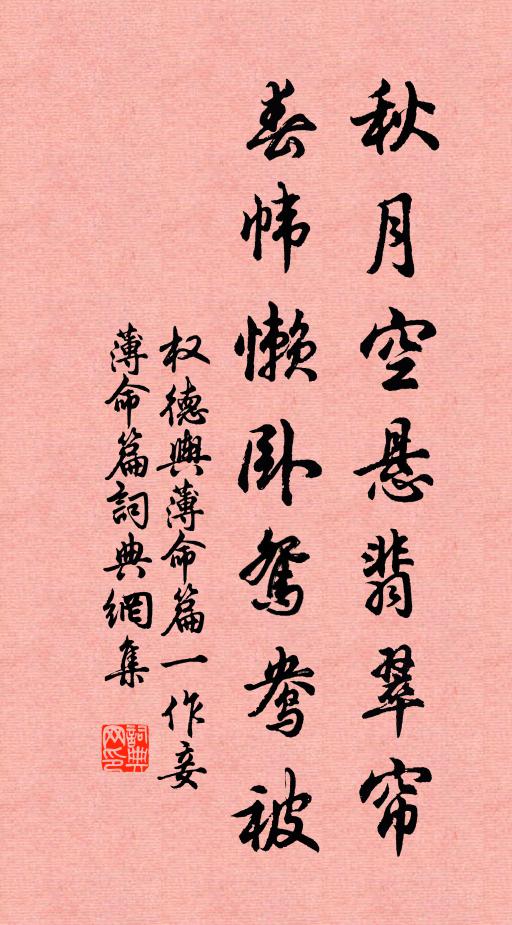 秋月空悬翡翠帘
春帏懒卧鸳鸯被
权德舆薄命篇一作妾
薄命篇詞典網集
詞典网印